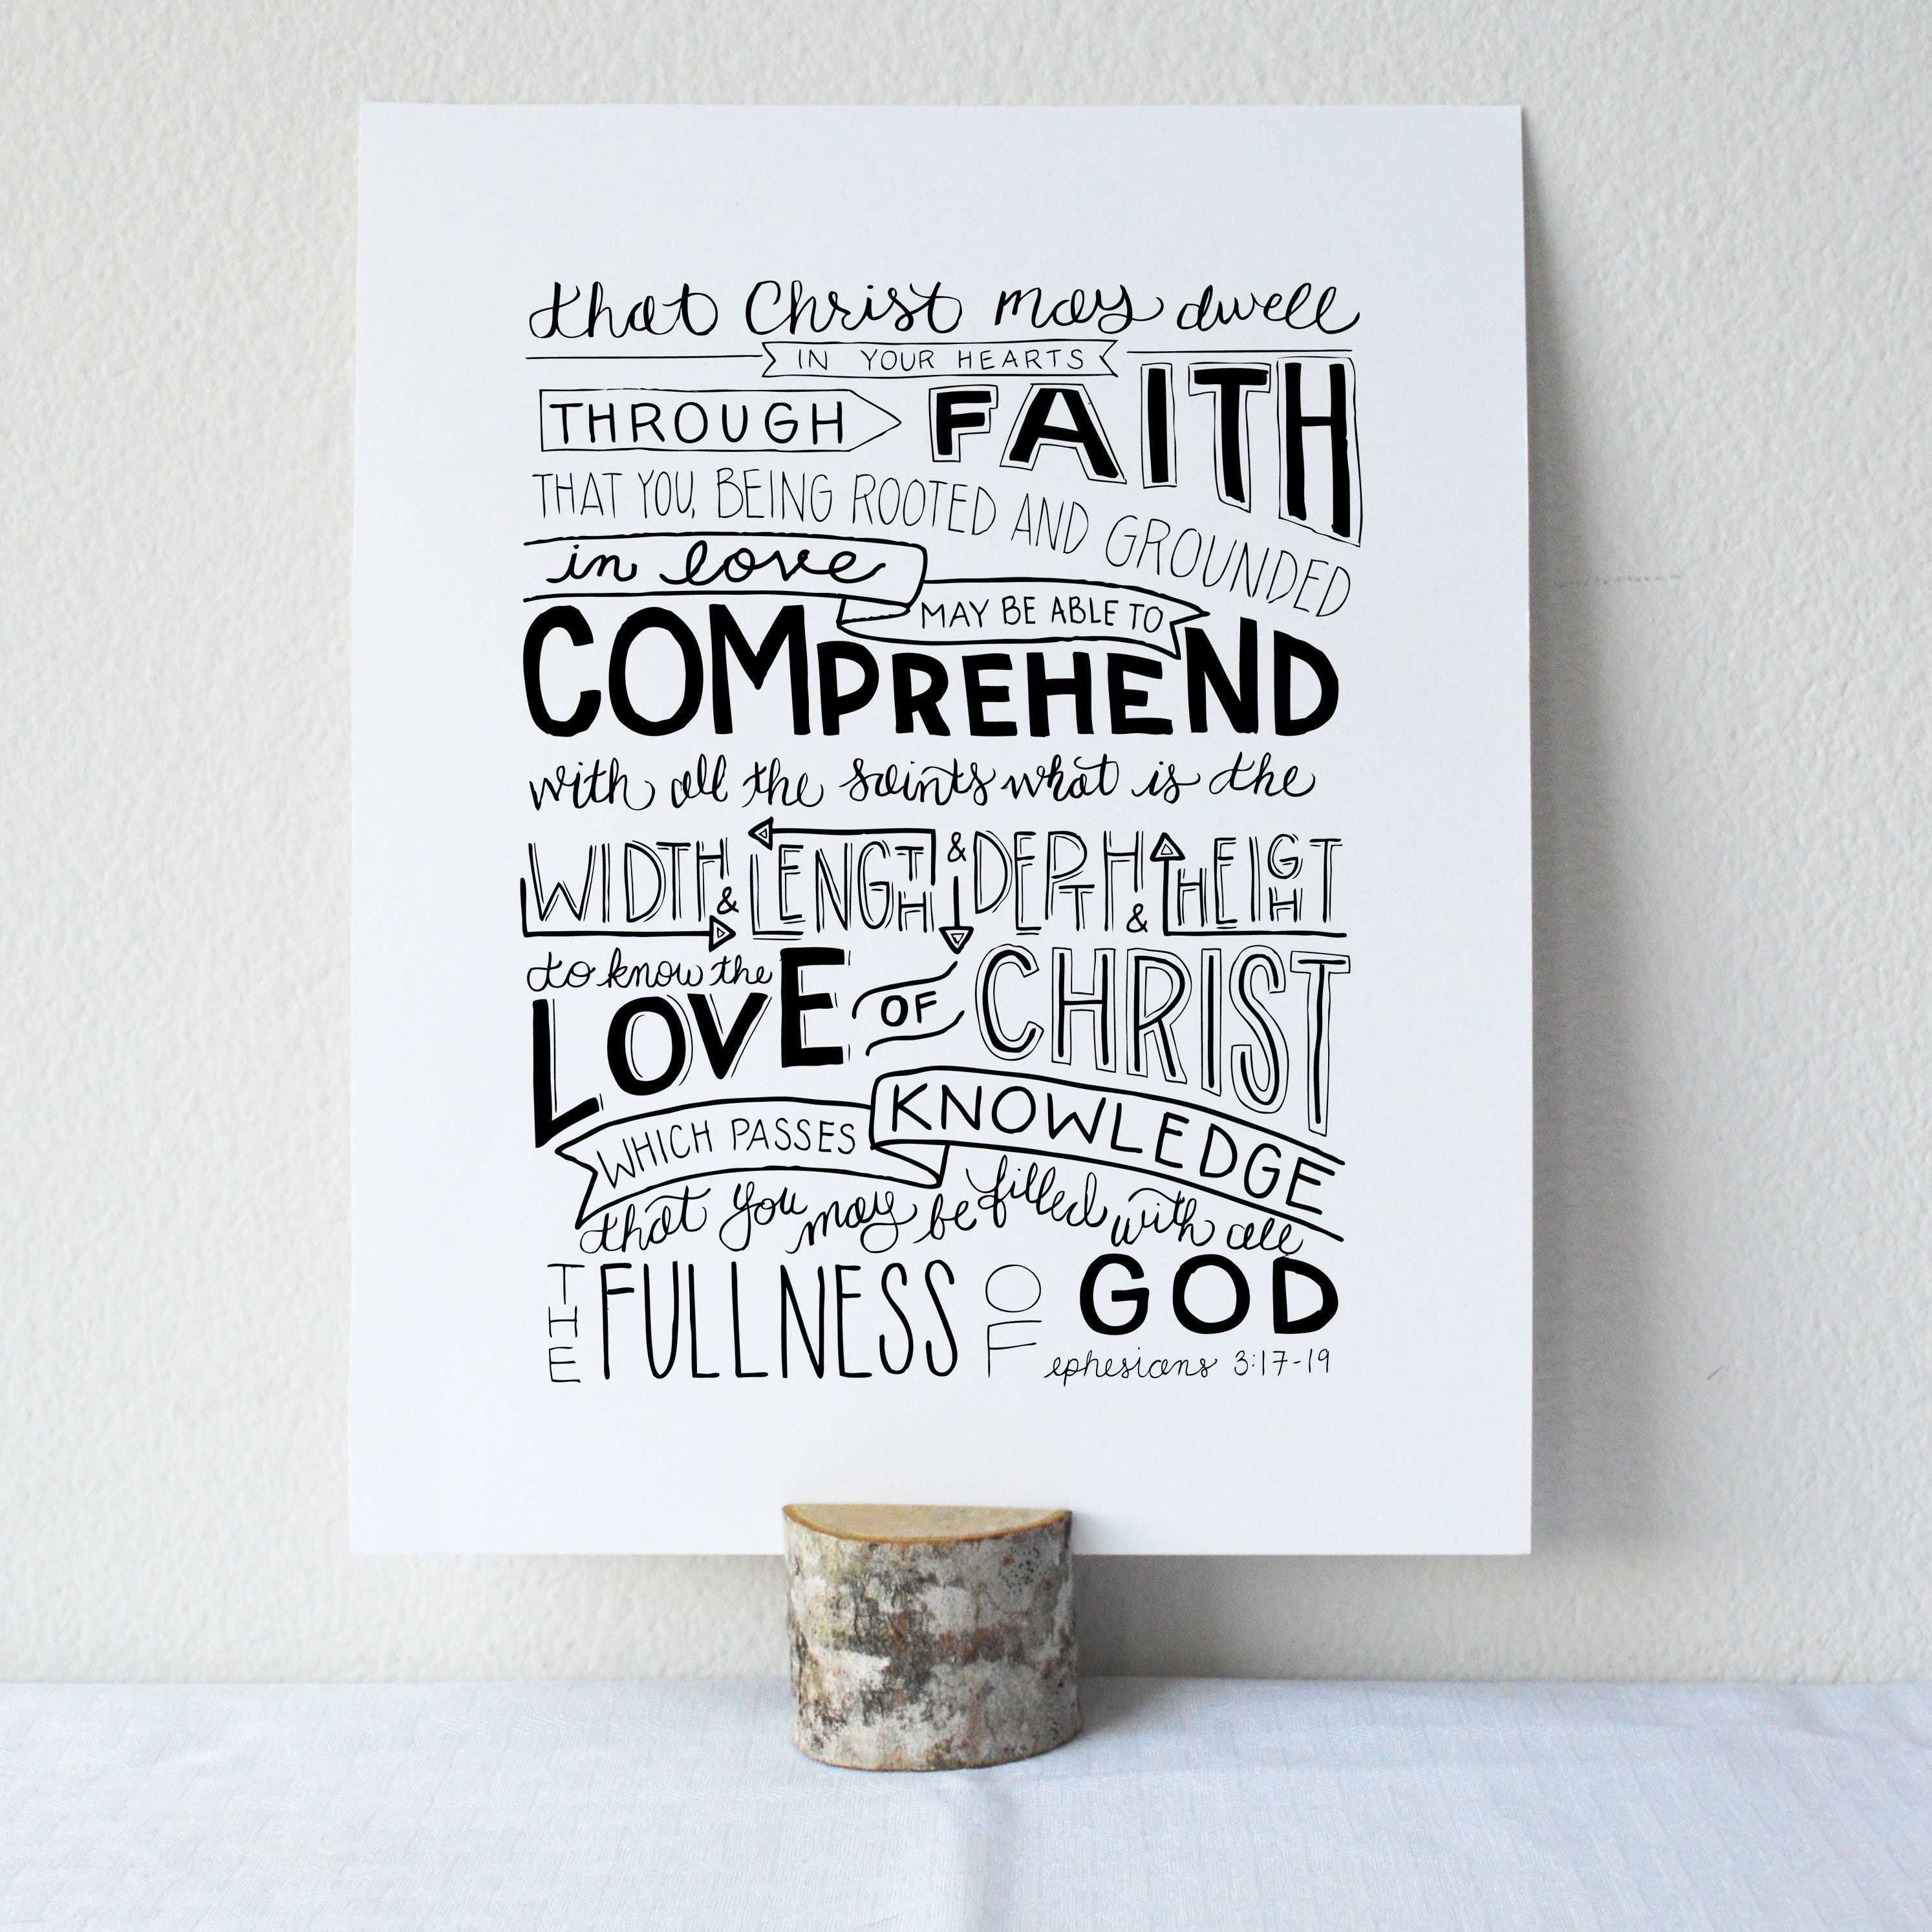 that Christ may dwell
IN YOUR HEARTS
THROUGH FAITH
THAT YOU, BEING ROOTED AND GROUNDED
in love
MAY BE ABLE TO
COMPREHEND
with all the saints what is the
WIDTH & LENGTH & DEPTH & HEIGHT
to know the
LOVE OF CHRIST
WHICH PASSES KNOWLEDGE
that you may be filled with all
THE FULLNESS OF GOD
ephesians 3:17-19